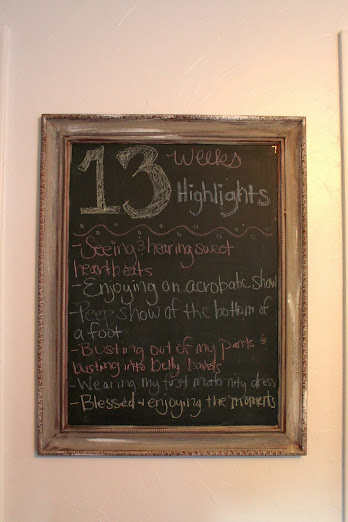 13 weeks
Highlights
- Seeing & hearing sweet
heartbeats
- Enjoying an acrobatic show
- Peep show of the bottom of
a foot
- Busting out of my pants &
busting into belly bands
- Wearing my first maternity dress
- Blessed & enjoying the moments